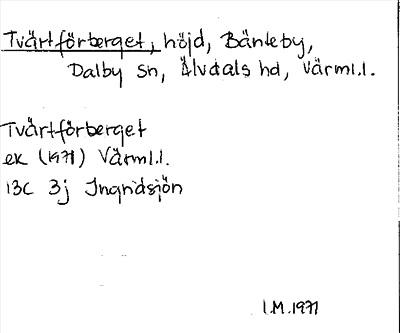 Tvärtförberget, höjd, Bänteby,
Dalby sn, Älvdals hd, Värml.l.
Tvärtförberget
ek (1971) Värml.l.
13C 3j Ingridsjön
I.M.1971